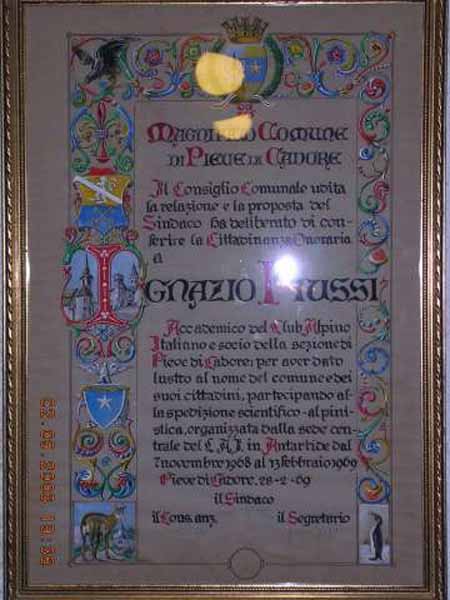 Magnifico Comune
di Pieve di Cadore
Il Consiglio Comunale udita
la relazione e la proposta del
Sindaco ha deliberato di con-
ferire la Cittadinanza Onoraria
a
Ignazio Piussi
Accademico del Club Alpino
Italiano e socio della sezione di
Pieve di Cadore; per aver dato
lustro al nome del comune e dei
suoi cittadini, partecipando al-
la spedizione scientifico-alpini
stica, organizzata dalla sede cen-
trale del C.A.I. in Antartide dal
7 novembre 1968 al 13 febbraio 1969
Pieve di Cadore, 28-2-69
il Sindaco
il Cons. anz. il Segretario